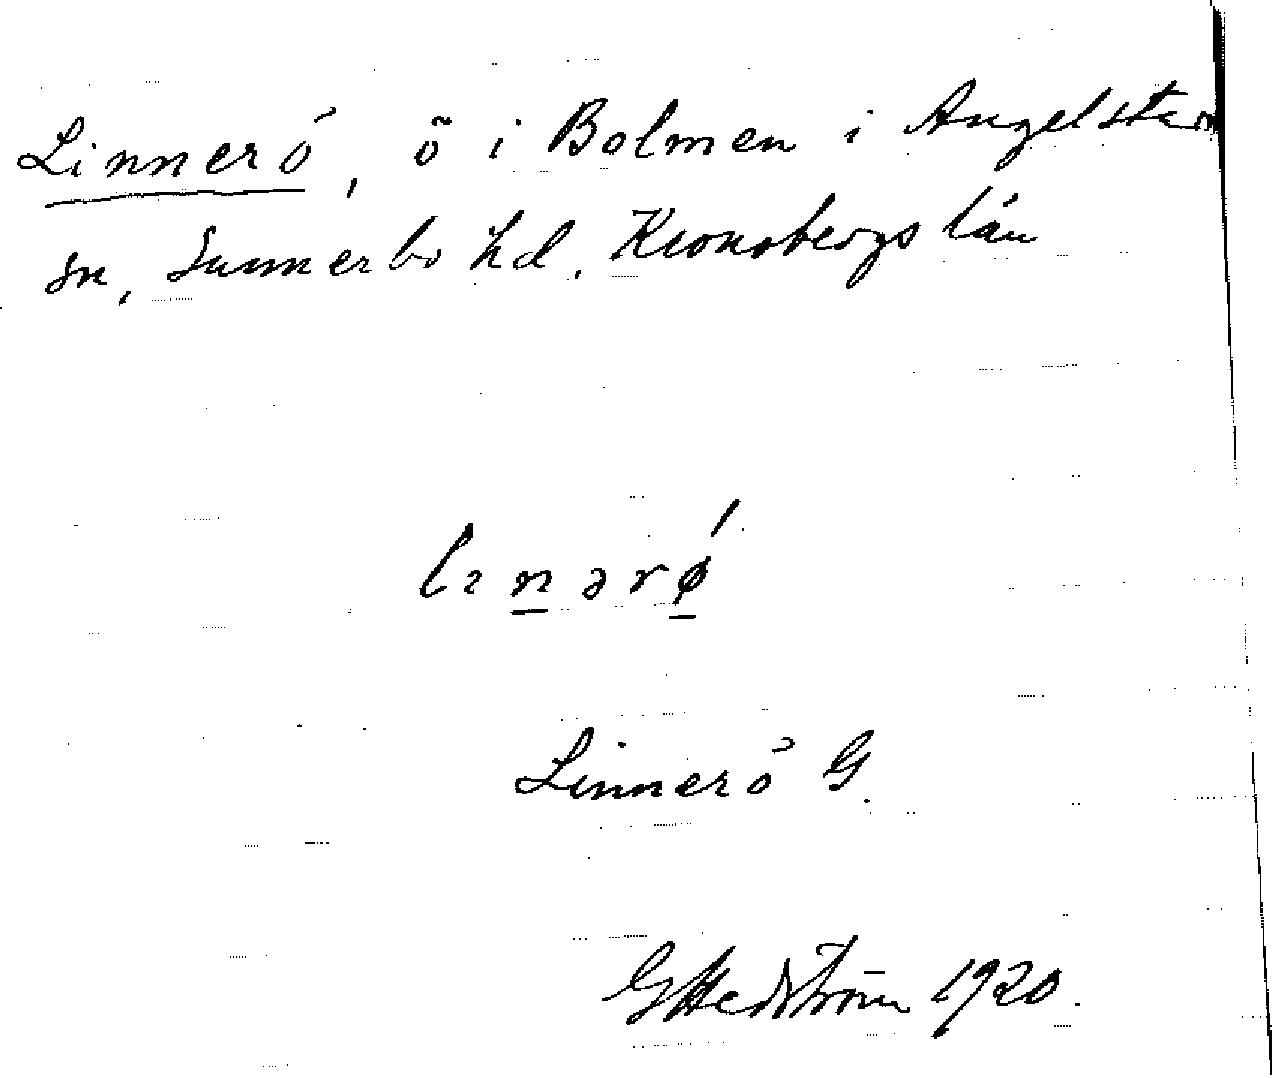 Linnerö, ö i Bolmen i Angelstad
sn, Sunnerbo hd, Kronobergs län
Linnerö G.
GHedström 1920.